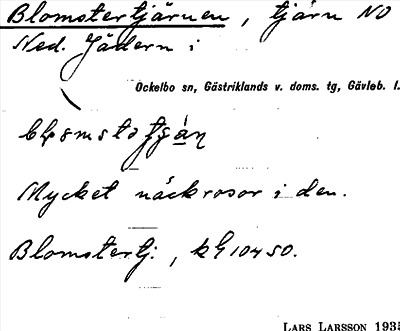 Blomstertjärnen, tjärn NO
Ned. Jädern i
Ockelbo sn, Gästriklands v. doms. tg, Gävleb. l.
Mycket näckrosor i den.
Blomstertj:, kh 10450.
LARS LARSSON 1935